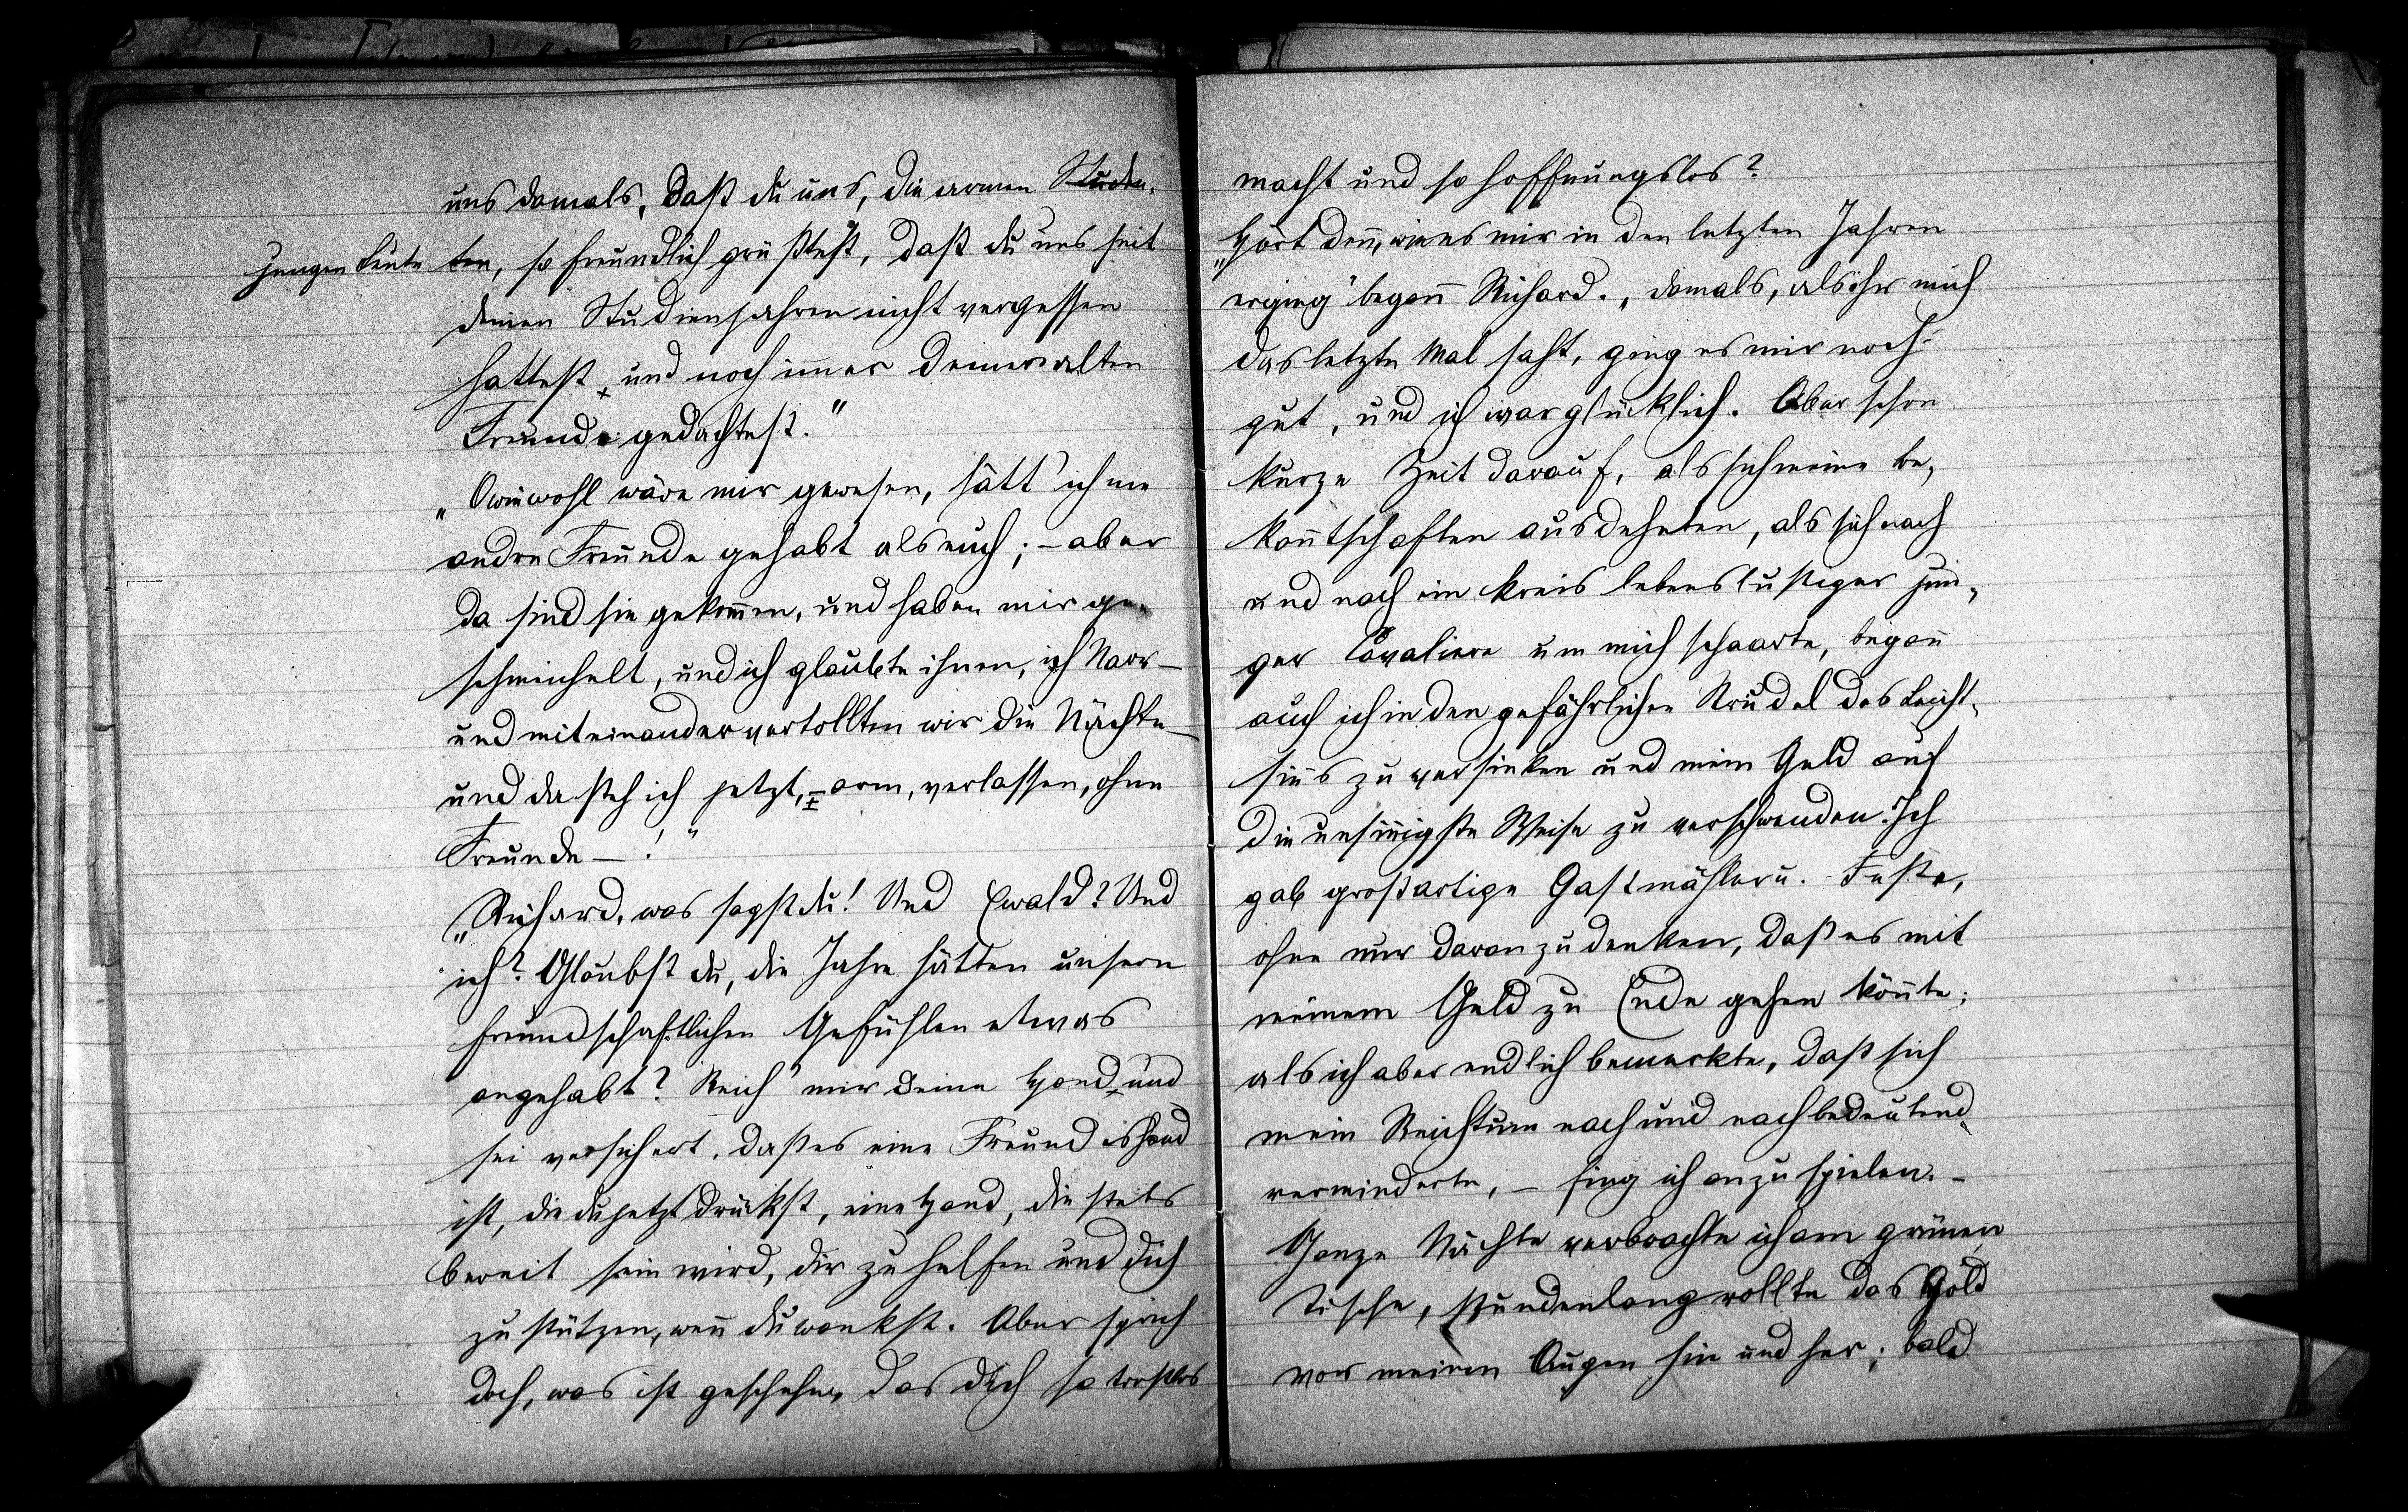 uns damals, daß du uns, die armen Studen,
jungen Leute
ten, so freundlich grüßtest, daß du uns seit
deinen Studienjahren nicht vergessen
hattest, und noch im̄er deiner alten
Freunde gedachtest."
„O wie wohl wäre mir gewesen, hätt' ich nie
andre Freunde gehabt als euch; – aber
da sind sie gekom̄en, und haben mir ge„
schmeichelt, und ich glaubte ihnen, ich Narr –
und miteinander vertollten wir die Nächte –
und da steh ich jetzt, – arm, verlassen, ohne
Freunde – !"
„Richard, was sagst du! Und Ewald? Und
ich? Glaubst du, die Jahre hätten unsern
freundschaftlichen Gefühlen etwas
angehabt? Reich' mir deine Hand und
sei versichert, daß es eine Freundishand
ist, die du jetzt drückst, eine Hand, die stets
bereit sein wird, dir zu helfen und dich
zu stützen, wen̄ du wankst. Aber sprich
doch, was ist geschehn, das dich so trostlos
macht und so hoffnungslos?
„Hört den̄, wie es mir in den letzten Jahren
erging" began̄ Richard. „damals, als ihr mich
das letzte Mal saht, ging es mir noch
gut, und ich war glücklich. Aber schon
kurze Zeit darauf, als sich meine be„
kan̄tschaften ausdehnten, als sich nach
und nach ein Kreis lebenslustiger jun„
ger Cavaliere um mich schaarte, began̄
auch ich in den gefährlichen Strudel des Leicht„
sin̄s zu versinken und mein Geld auf
die unsin̄igste Weise zu verschwenden. Ich
gab großartige Gastmähler u. Feste,
ohne nur daran zu denken, daß es mit
meinem Geld zu Ende gehen kön̄te;
als ich aber endlich bemerkte, daß sich
mein Reichtum nach und nach bedeutend
verminderte, – fing ich an zu spielen. –
Ganze Nächte verbrachte ich am grünen
Tische, stundenlang rollte das Gold
vor meinen Augen hin und her; bald